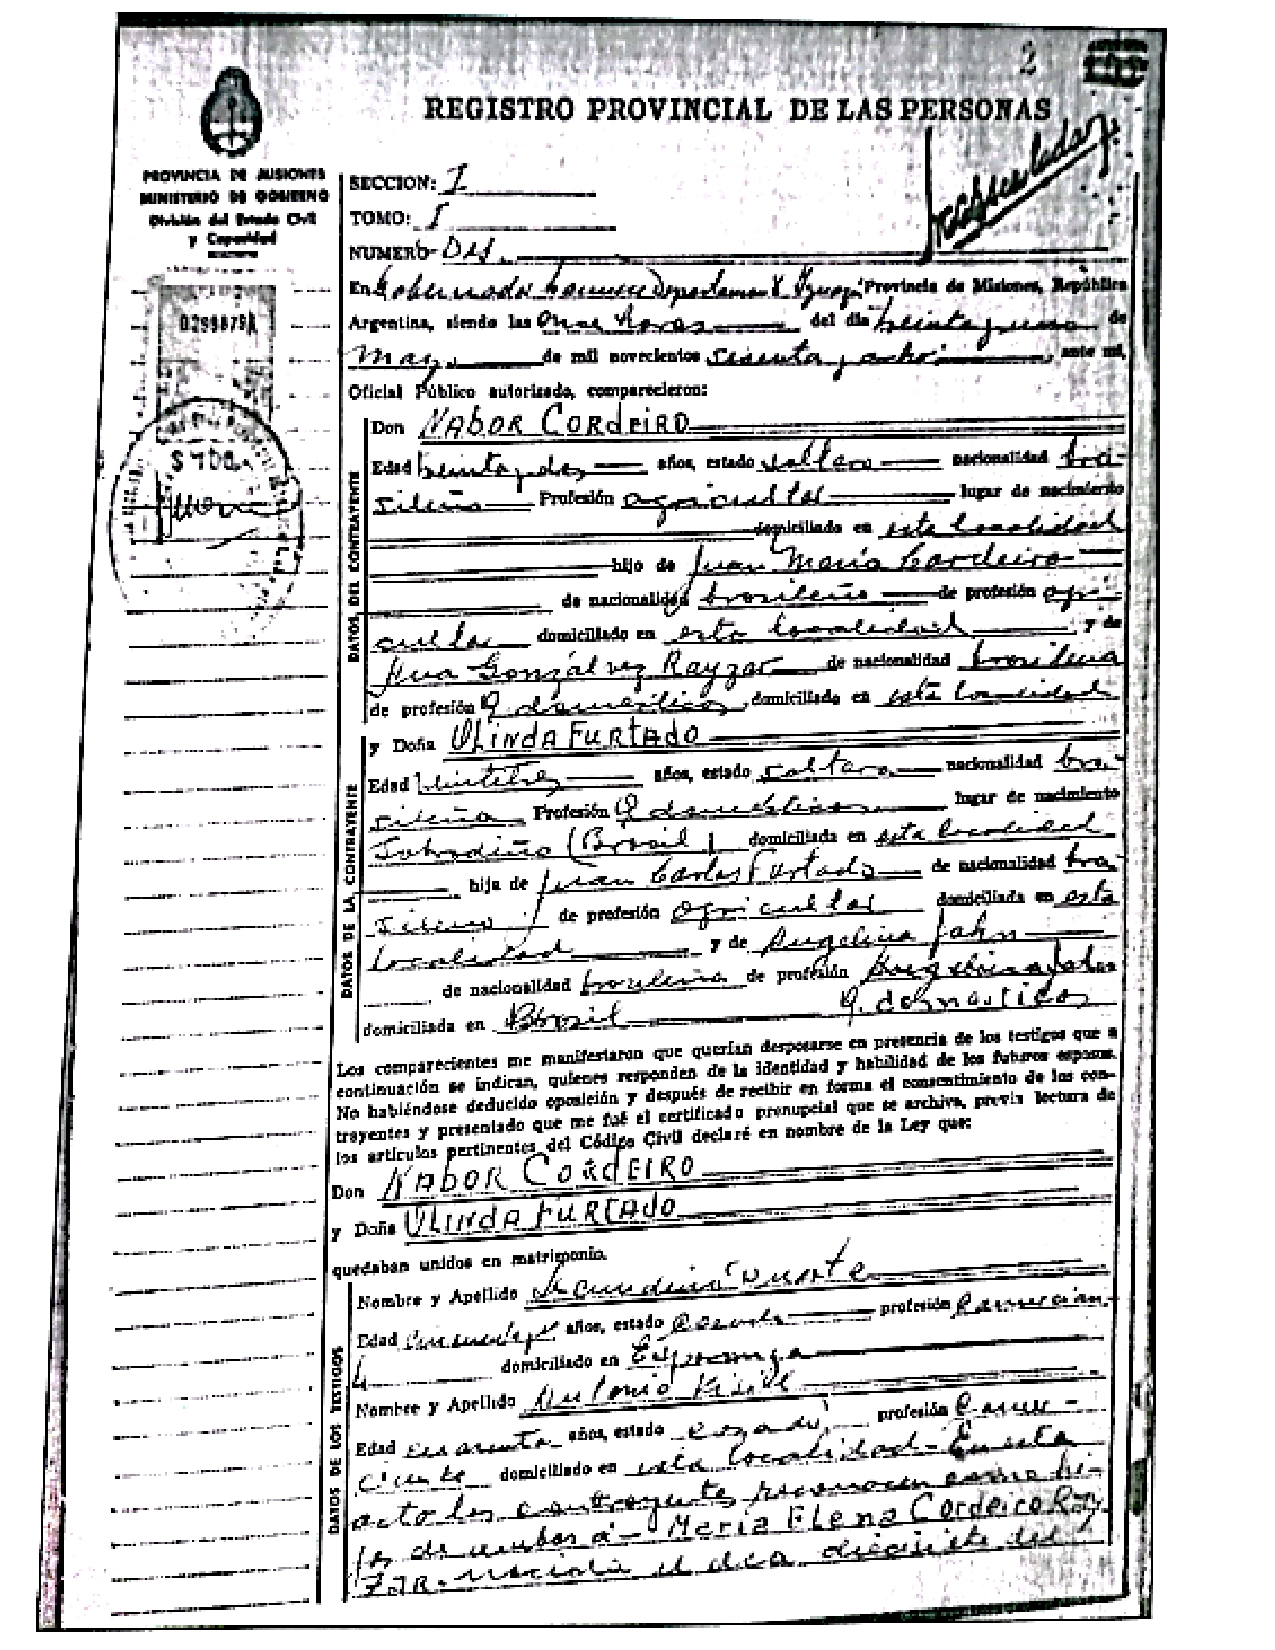 2
REGISTRO PROVINCIAL DE LAS PERSONAS
PROVINCIA DE MISIONES
MINISTERIO DE GOBIERNO
División del Estado Civil
y Capacidad
SECCION: I
TOMO: I
NUMERO- Dos.
En Gobernador Departamento Iguazú Provincia de Misiones, República
Argentina, siendo las Once horas del dia veintiuno de
Mayo de mil novecientos sesenta y ocho ante mi,
Oficial Público autorizado, comparecieron:
DATOS DEL CONTRATENTE
Don NABOR CORDEIRO
Edad veintidos años, estado soltero nacionalidad bra-
sileña Profesión agricultor lugar de nacimiento
domiciliado en esta localidad
hijo de Juan María Cordeiro
de nacionalidad brasileño de profesión agri
cultor domiciliado en esta localidad y de
Ana Gonzálvez Rayzar de nacionalidad brasileña
de profesión Q. domésticos domiciliado en esta localidad
DATOS DE LA CONTRATENTE
y Doña OLINDA FURTADO
Edad veintitres años, estado soltera nacionalidad bra-
sileña Profesión Q domésticos lugar de nacimiento
(Brasil) domiciliada en esta localidad
hija de Juan Carlos Furtado de nacionalidad bra-
sileno de profesión agricultor domiciliada en esta
localidad y de Angelina Jahn
de nacionalidad brasileña de profesión
domiciliada en Brasil Q. domésticos
Los comparecientes me manifestaron que querían desposarse en presencia de los testigos que a
continuación se indican, quienes responden de la identidad y habilidad de los futuros esposos.
No habiéndose deducido oposición y después de recibir en forma el consentimiento de los con-
trayentes y presentado que me fué el certificado prenupcial que se archiva, previa lectura de
los artículos pertinentes del Código Civil declaré en nombre de la Ley que:
Don NABOR CORDEIRO
y Doña OLINDA FURTADO
quedaban unidos en matrimonio.
DATOS DE LOS TESTIGOS
Nombre y Apellido Secundino Duarte
Edad años, estado casado profesión Comercian-
te domiciliado en Esperanza
Nombre y Apellido Antonio
Edad cuarenta años, estado casado profesión Comer-
ciante domiciliado en esta localidad- En este
acto los contrayentes reconocen como hi-
jos de ambos a- Maria Elena Cordeiro Ray-
zar. nacida el dia diecisiete del